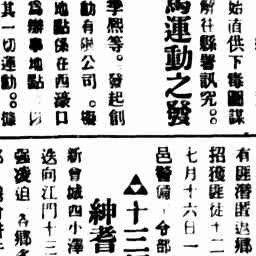 始直供下毒圖謀
解往縣署訊究。。
馬運動之發
熙等。發起創
動有限公司。擬
地點係在西濠口
爲辦事地點。以
其一切運動。。
有匪潛匿鄉
招獲匪徒十二
七月十六日一
邑警備 分部
▲十三
紳耆
新會城四小澤
迭向江門十三
強凌迫 各鄉